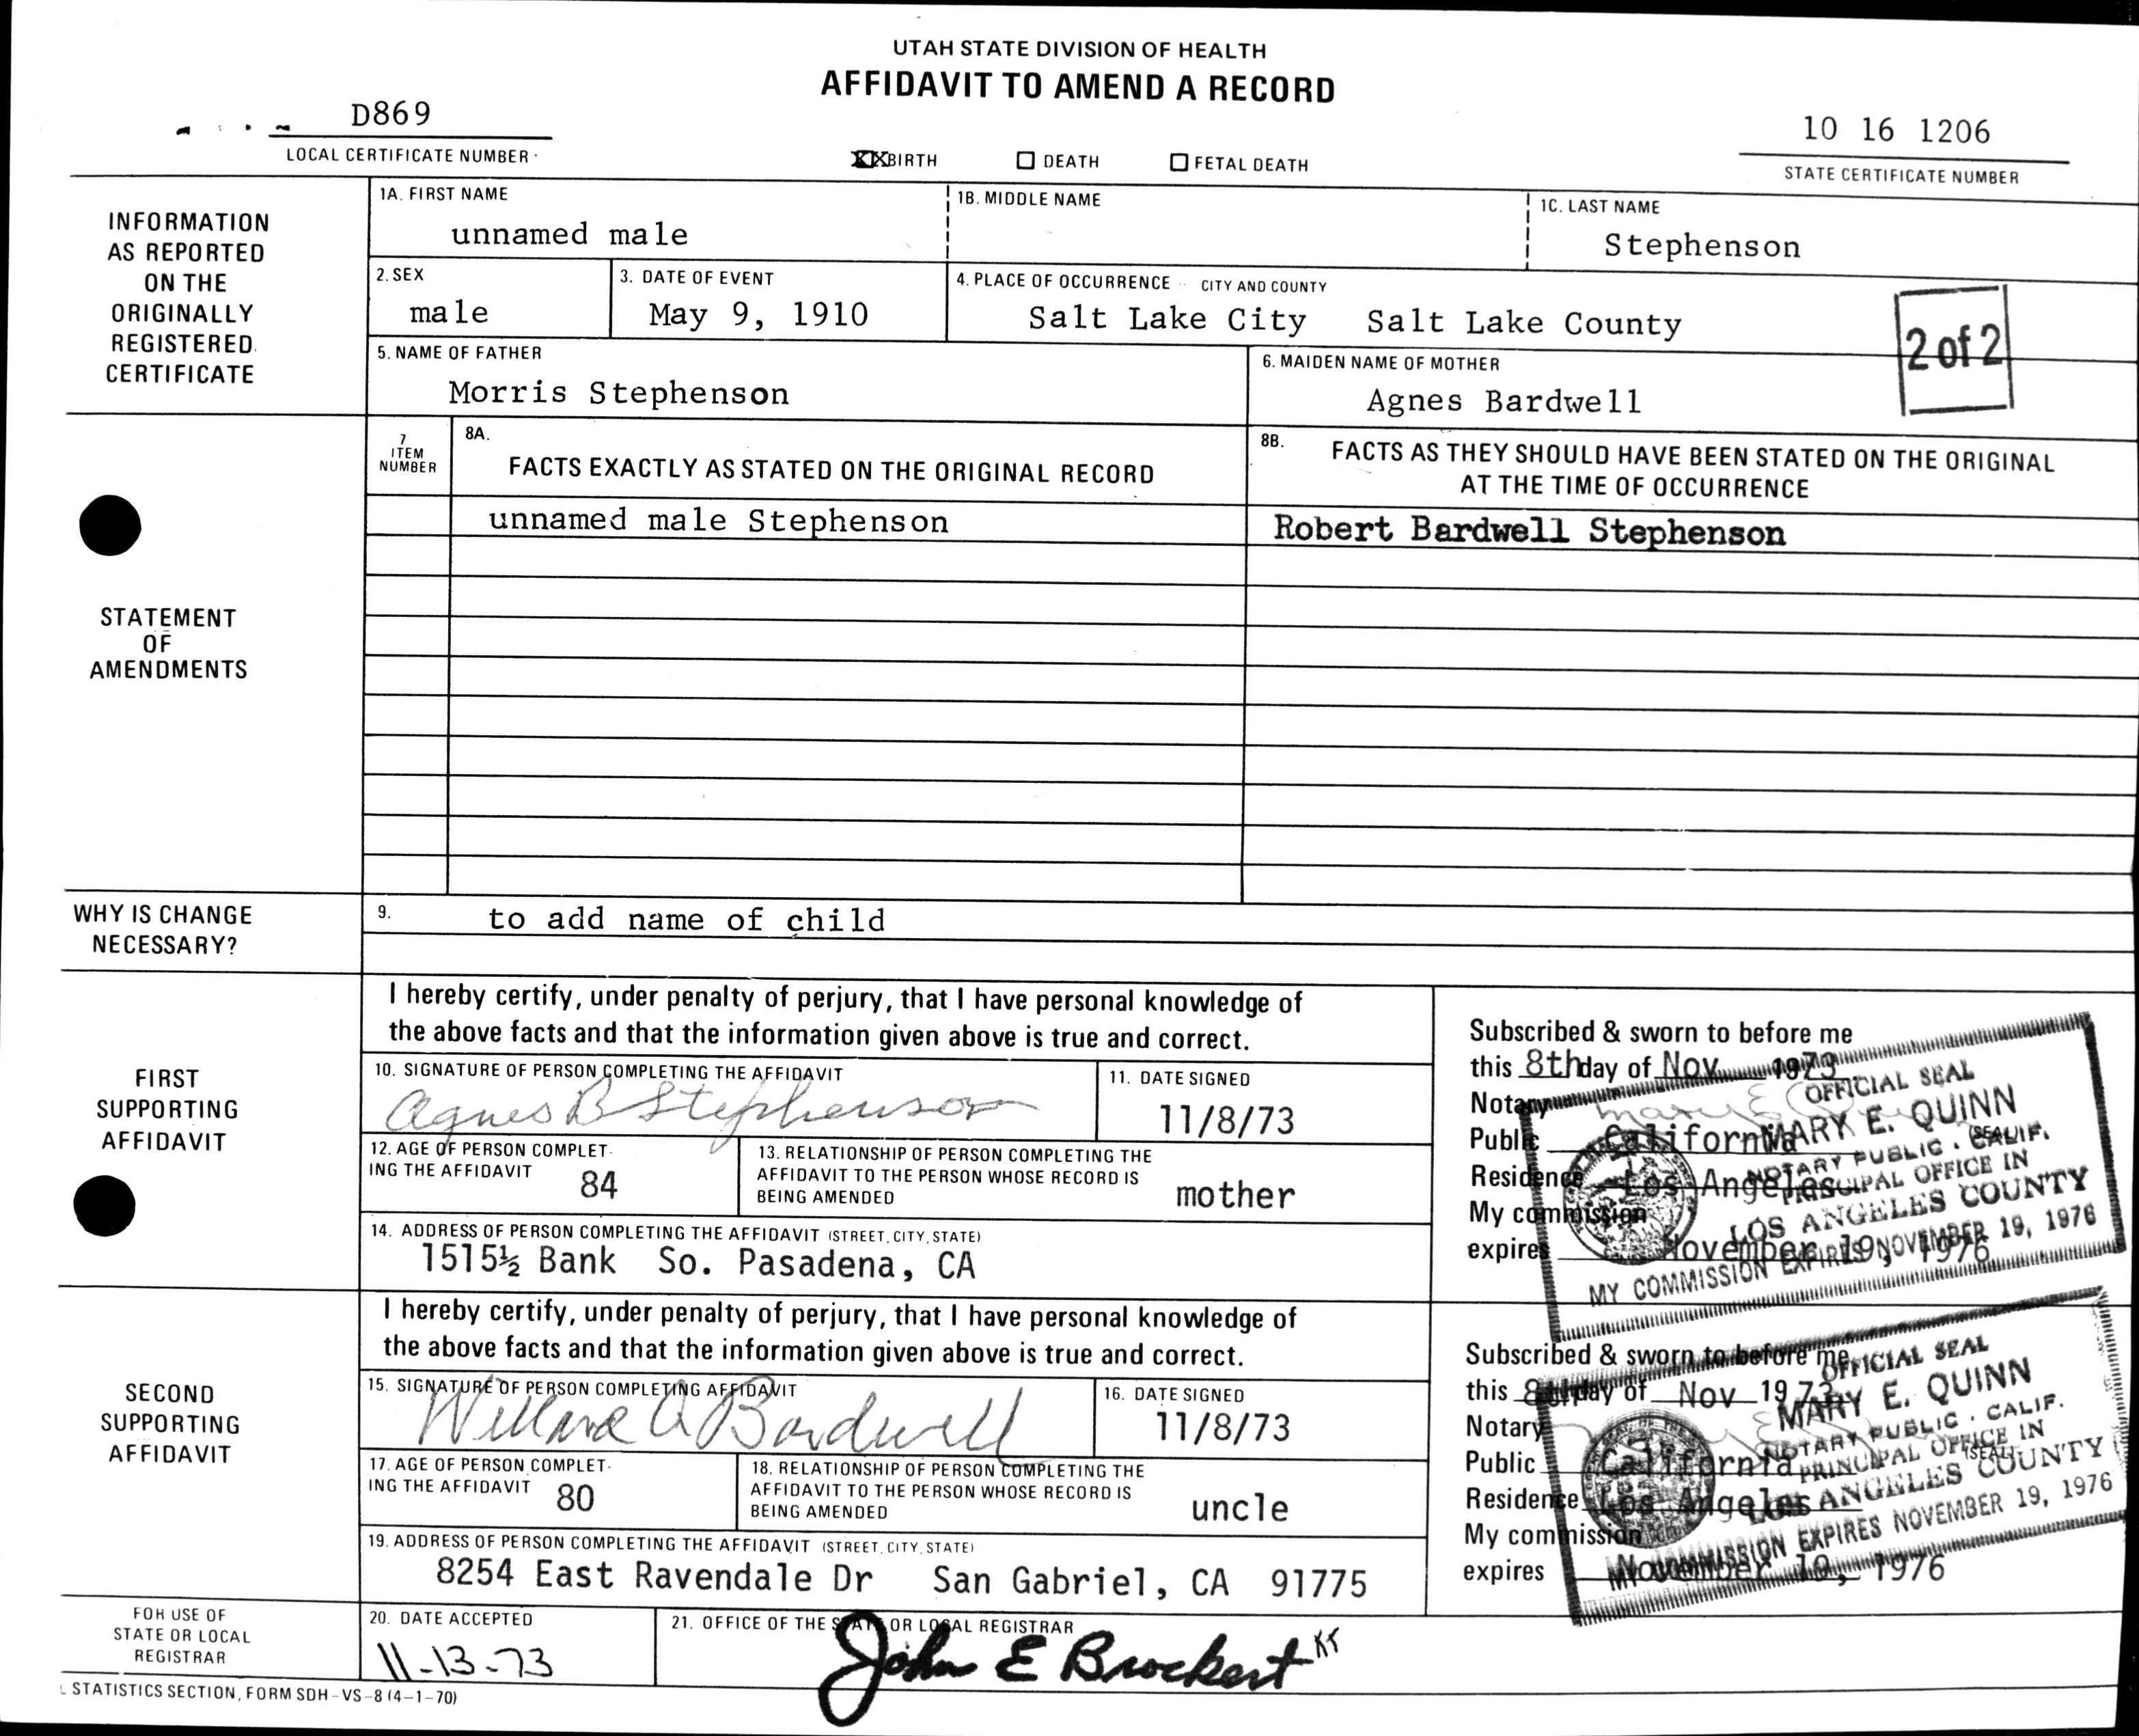 UTAH STATE DIVISION OF HEALTH
AFFIDAVIT TO AMEND A RECORD
D869
LOCAL CERTIFICATE NUMBER
XX BIRTH DEATH FETAL DEATH
10 16 1206
STATE CERTIFICATE NUMBER
INFORMATION
AS REPORTED
ON THE
ORIGINALLY
REGISTERED
CERTIFICATE
1A. FIRST NAME
unnamed male
1B. MIDDLE NAME
1C. LAST NAME
Stephenson
2. SEX
male
3. DATE OF EVENT
May 9, 1910
4. PLACE OF OCCURRENCE CITY AND COUNTY
Salt Lake City Salt Lake County
2 of 2
5. NAME OF FATHER
Morris Stephenson
6. MAIDEN NAME OF MOTHER
Agnes Bardwell
STATEMENT
OF
AMENDMENTS
7
ITEM
NUMBER
8A.
FACTS EXACTLY AS STATED ON THE ORIGINAL RECORD
8B. FACTS AS THEY SHOULD HAVE BEEN STATED ON THE ORIGINAL
AT THE TIME OF OCCURRENCE
unnamed male Stephenson
Robert Bardwell Stephenson
WHY IS CHANGE
NECESSARY?
9. to add name of child
FIRST
SUPPORTING
AFFIDAVIT
I hereby certify, under penalty of perjury, that I have personal knowledge of
the above facts and that the information given above is true and correct.
10. SIGNATURE OF PERSON COMPLETING THE AFFIDAVIT
Agnes B Stephenson
11. DATE SIGNED
11/8/73
12. AGE OF PERSON COMPLET-
ING THE AFFIDAVIT 84
13. RELATIONSHIP OF PERSON COMPLETING THE
AFFIDAVIT TO THE PERSON WHOSE RECORD IS
BEING AMENDED mother
14. ADDRESS OF PERSON COMPLETING THE AFFIDAVIT (STREET, CITY, STATE)
1515½ Bank So. Pasadena, CA
Subscribed & sworn to before me
this 8th day of Nov 1973
Notary
Public California
Residence Los Angeles
My commission
expires November 19, 1976
(SEAL)
OFFICIAL SEAL
MARY E. QUINN
NOTARY PUBLIC . CALIF.
PRINCIPAL OFFICE IN
LOS ANGELES COUNTY
MY COMMISSION EXPIRES NOVEMBER 19, 1976
SECOND
SUPPORTING
AFFIDAVIT
I hereby certify, under penalty of perjury, that I have personal knowledge of
the above facts and that the information given above is true and correct.
15. SIGNATURE OF PERSON COMPLETING AFFIDAVIT
Willard A Bardwell
16. DATE SIGNED
11/8/73
17. AGE OF PERSON COMPLET-
ING THE AFFIDAVIT 80
18. RELATIONSHIP OF PERSON COMPLETING THE
AFFIDAVIT TO THE PERSON WHOSE RECORD IS
BEING AMENDED uncle
19. ADDRESS OF PERSON COMPLETING THE AFFIDAVIT (STREET, CITY, STATE)
8254 East Ravendale Dr San Gabriel, CA 91775
Subscribed & sworn to before me
this 8th day of Nov 1973
Notary
Public California
Residence Los Angeles
My commission
expires November 19, 1976
(SEAL)
OFFICIAL SEAL
MARY E. QUINN
NOTARY PUBLIC . CALIF.
PRINCIPAL OFFICE IN
LOS ANGELES COUNTY
COMMISSION EXPIRES NOVEMBER 19, 1976
FOR USE OF
STATE OR LOCAL
REGISTRAR
20. DATE ACCEPTED
11-13-73
21. OFFICE OF THE STATE OR LOCAL REGISTRAR
John E Brockert KT
L STATISTICS SECTION, FORM SDH-VS-8 (4-1-70)